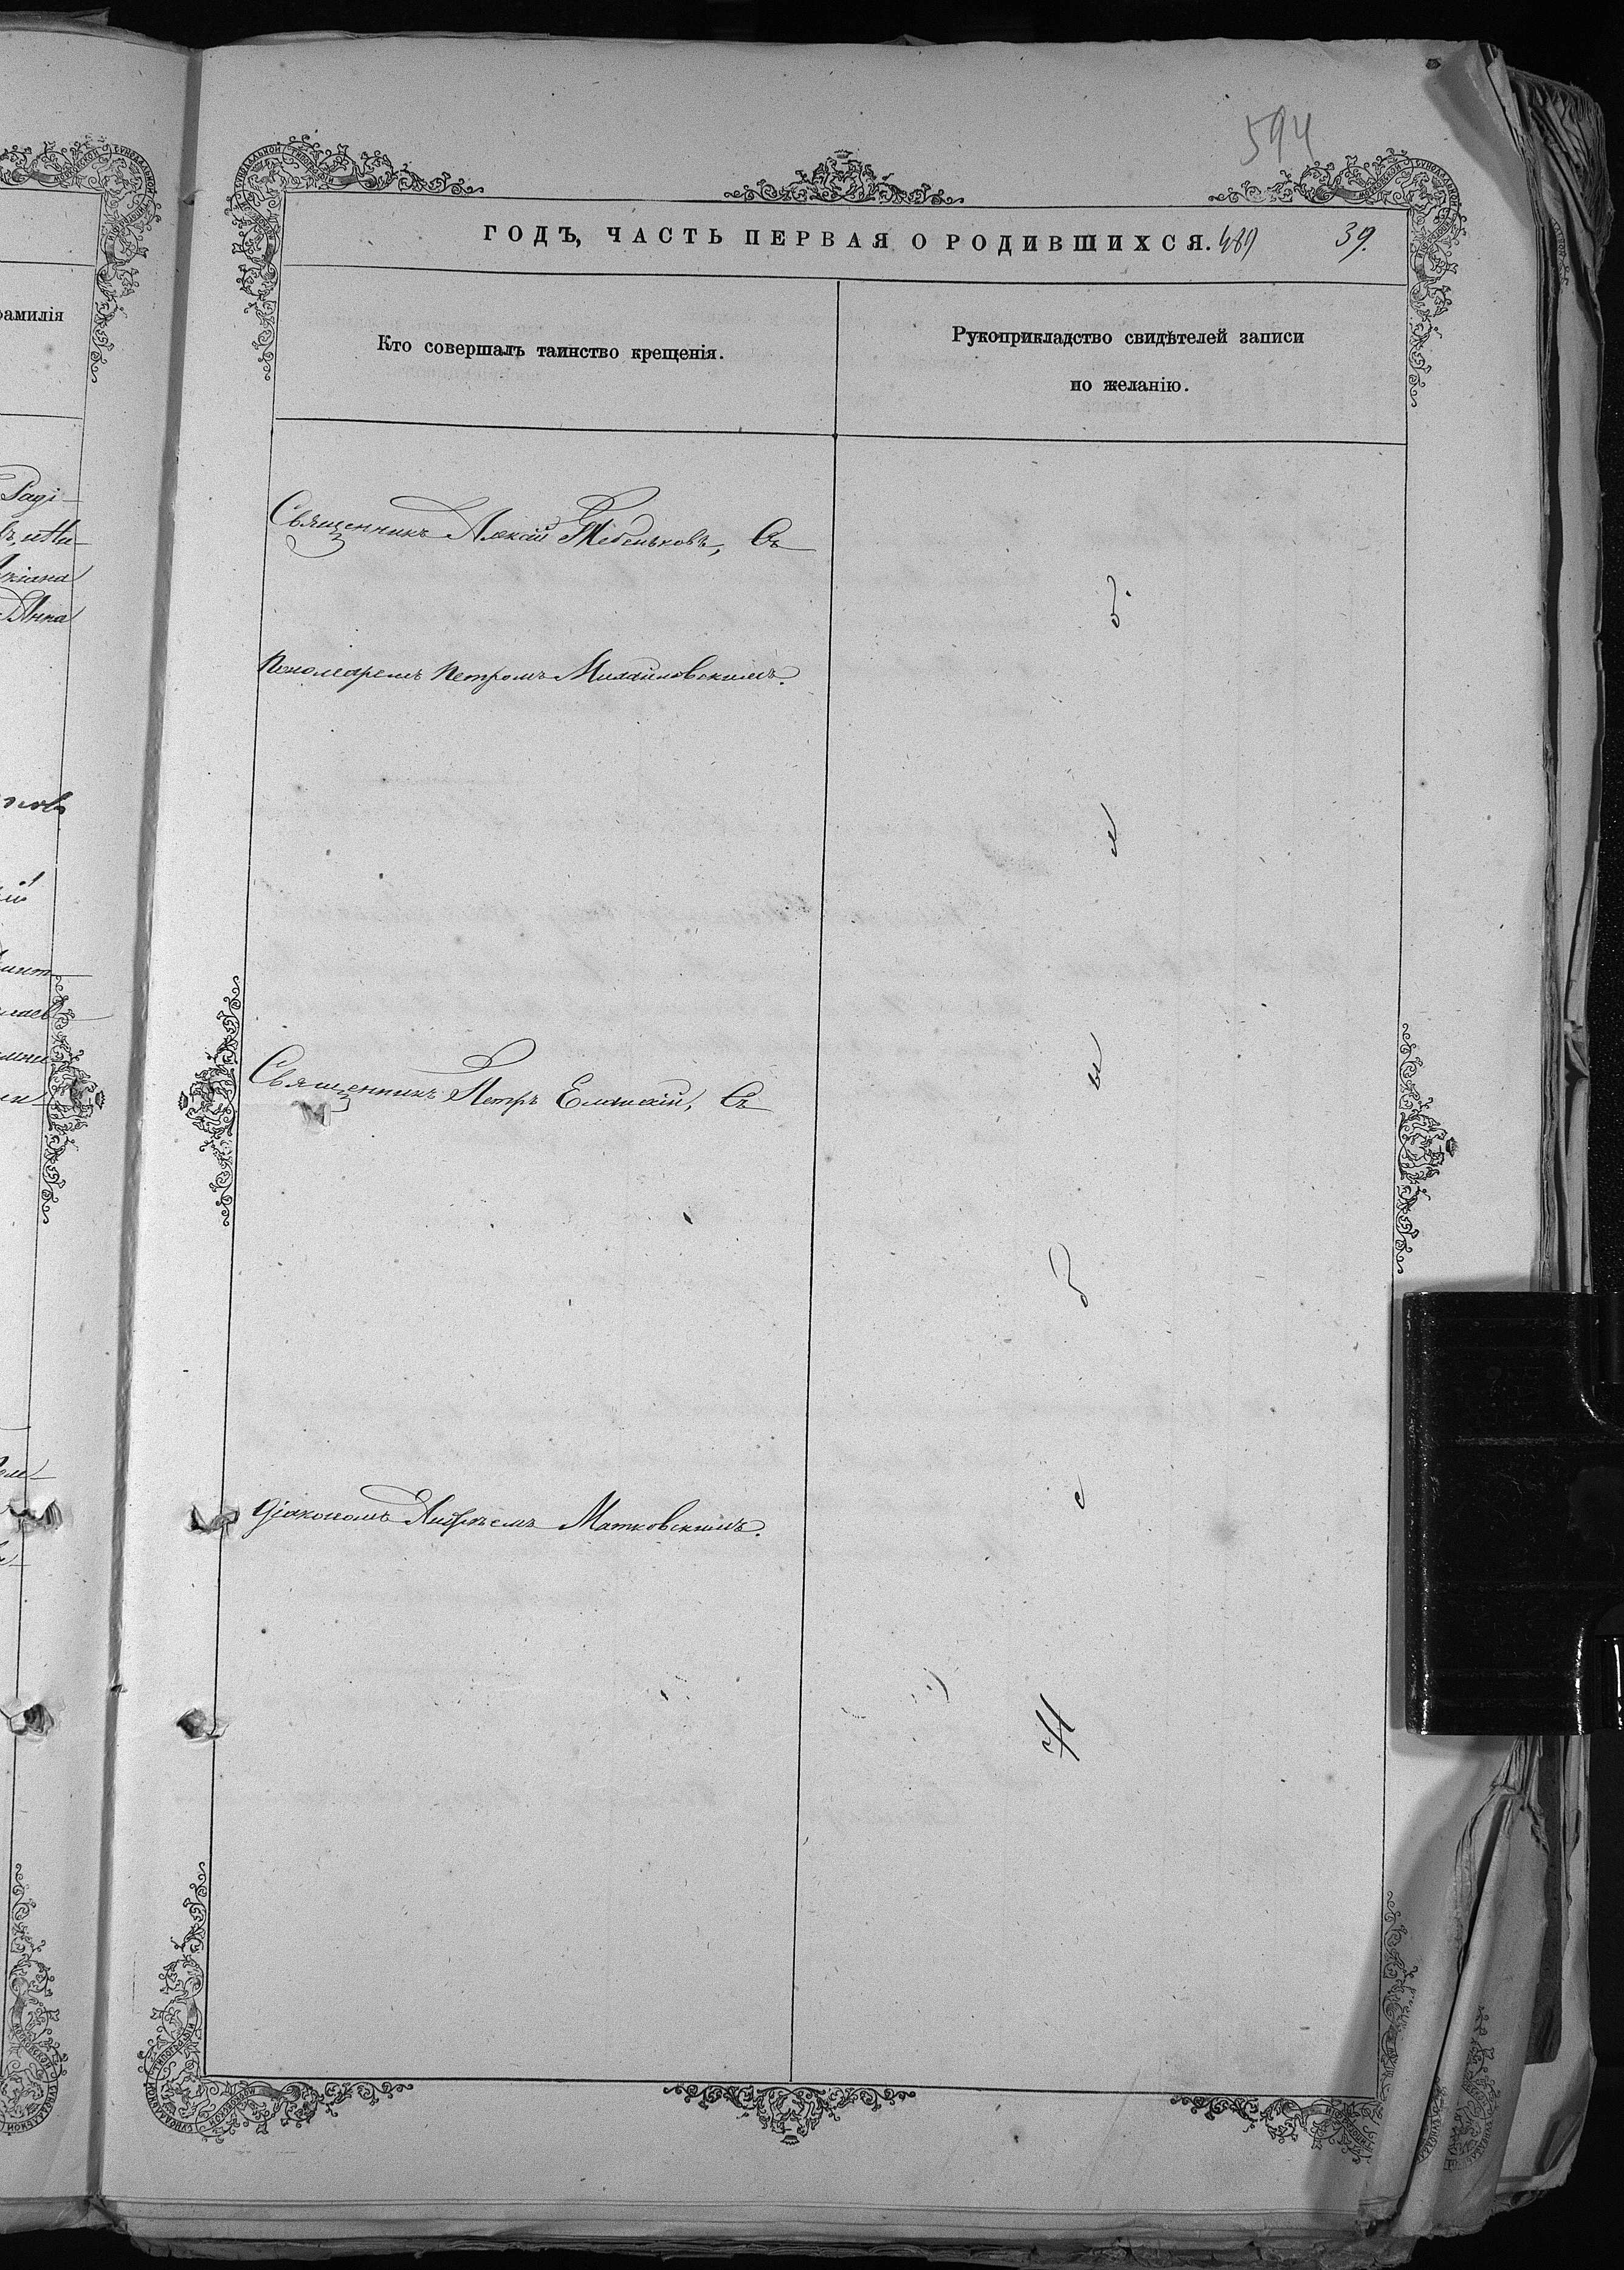 594
ГОДЪ, ЧАСТЬ ПЕРВАЯ О РОДИВШИХСЯ. 489 39.
фамилія
Кто совершалъ таинство крещенія.
Рукоприкладство свидѣтелей записи
по желанію.
Священникъ Алексій Тебеньковъ, Съ
Анна
Пономаремъ Петромъ Михайловскимъ.
Священникъ Петръ Съ
Діакономъ Андреемъ Матковскимъ.
Н е б ы л о.